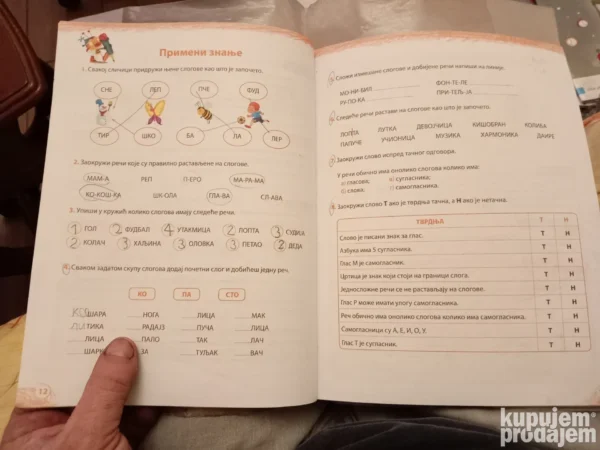 Примени знање
1. Свакој сличици придружи њене слогове као што је започето.
СНЕ ЛЕП ПЧЕ ФУД
ТИР ШКО БА ЛА ЛЕР
2. Заокружи речи које су правилно растављене на слогове.
МАМ-А РЕП П-ЕРО МА-РА-МА
КО-КОШ-КА ШК-ОЛА ГЛА-ВА СЛ-АВА
3. Упиши у кружић колико слогова имају следеће речи.
1 ГОЛ 2 ФУДБАЛ 4 УТАКМИЦА 2 ЛОПТА 3 СУДИЈА
2 КОЛАЧ 3 ХАЉИНА 3 ОЛОВКА 3 ПЕТАО 2 ДЕДА
4. Сваком задатом скупу слогова додај почетни слог и добићеш једну реч.
КО ПА СТО
КОШАРА НОГА ЛИЦА МАК
ТИКА РАДАЈЗ ПУЧА ЛИЦА
ЛИЦА ПАЛО ТАК ЛАЧ
ШАРК ЗА ТУЉАК ВАЧ
12
5. Сложи измешане слогове и добијене речи напиши на линије.
МО-НИ-БИЛ ФОН-ТЕ-ЛЕ
РУ-ПО-КА ПРИ-ТЕЉ-ЈА
6. Следеће речи растави на слогове као што је започето.
ЛОПТА ЛУТКА ДЕВОЈЧИЦА КИШОБРАН КОЛИБА
ПАПУЧЕ УЧИОНИЦА МУЗИКА ХАРМОНИКА ДАИРЕ
7. Заокружи слово испред тачног одговора.
У речи обично има онолико слогова колико има:
а) гласова, б) сугласника;
в) слова, г) самогласника.
8. Заокружи слово Т ако је тврдња тачна, а Н ако је нетачна.
ТВРДЊА Т Н
Слово је писани знак за глас. Т Н
Азбука има 5 сугласника. Т Н
Глас М је самогласник. Т Н
Цртица је знак који стоји на граници слога. Т Н
Једносложне речи се не растављају на слогове. Т Н
Глас Р може имати улогу самогласника. Т Н
Реч обично има онолико слогова колико има самогласника. Т Н
Самогласници су А, Е, И, О, У. Т Н
Глас Т је сугласник. Т Н
kupujem
prodajem